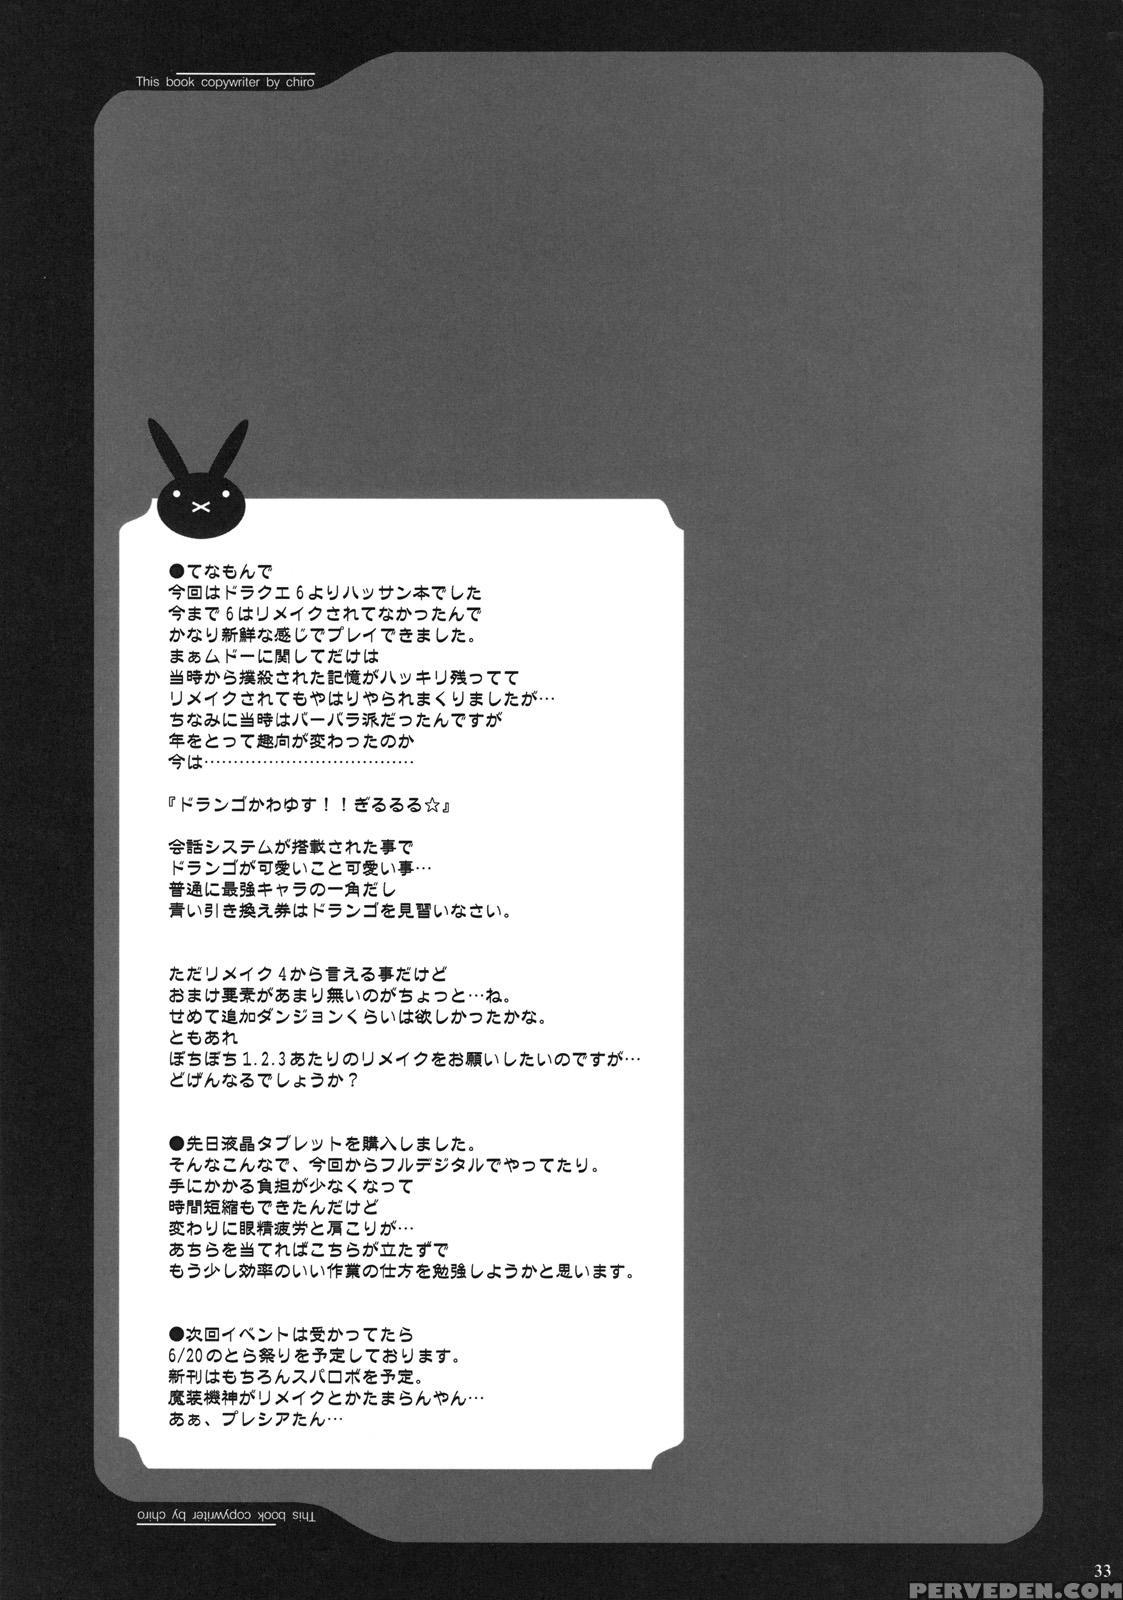 This book copywriter by chiro
●てなもんで
今回はドラクエ6よりハッサン本でした
今まで6はリメイクされてなかったんで
かなり新鮮な感じでプレイできました。
まぁムドーに関してだけは
当時から撲殺された記憶がハッキリ残ってて
リメイクされてもやはりやられまくりましたが…
ちなみに当時はバーバラ派だったんですが
年をとって趣向が変わったのか
今は………………………………
『ドランゴかわゆす！！ぎるるる☆』
会話システムが搭載された事で
ドランゴが可愛いこと可愛い事…
普通に最強キャラの一角だし
青い引き換え券はドランゴを見習いなさい。
ただリメイク4から言える事だけど
おまけ要素があまり無いのがちょっと…ね。
せめて追加ダンジョンくらいは欲しかったかな。
ともあれ
ぼちぼち1.2.3あたりのリメイクをお願いしたいのですが…
どげんなるでしょうか？
●先日液晶タブレットを購入しました。
そんなこんなで、今回からフルデジタルでやってたり。
手にかかる負担が少なくなって
時間短縮もできたんだけど
変わりに眼精疲労と肩こりが…
あちらを当てればこちらが立たずで
もう少し効率のいい作業の仕方を勉強しようかと思います。
●次回イベントは受かってたら
6/20のとら祭りを予定しております。
新刊はもちろんスパロボを予定。
魔装機神がリメイクとかたまらんやん…
あぁ、プレシアたん…
This book copywriter by chiro
33
PERVEDEN.COM